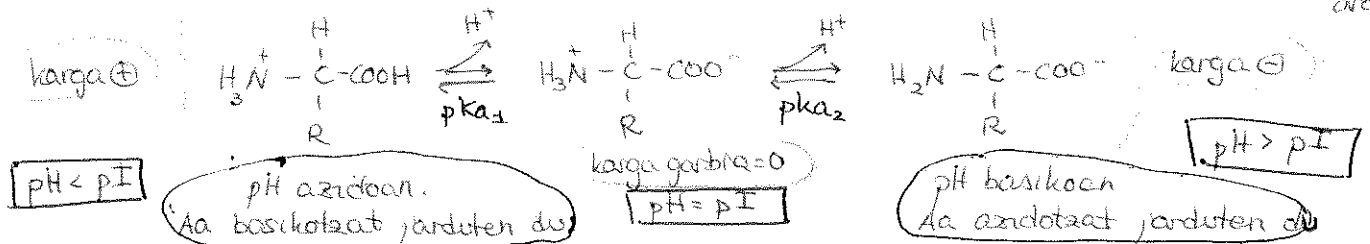 karga ⊕
H₃N⁺ - C - COOH
H
R
H⁺
pKa₁
H₃N⁺ - C - COO⁻
H
R
H⁺
pKa₂
H₂N - C - COO⁻
H
R
karga ⊖
pH < pI
pH azidoan.
Aa basikotzat jarduten du
karga garbia = 0
pH = pI
pH > pI
pH basikoan
Aa azidotzat jarduten du